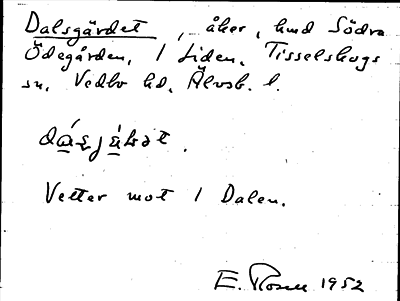 Dalsgärdet, åker, hmd Södra
Ödegården, 1 Liden, Tisselskogs
sn, Vedbo hd, Älvsb. l.
Vetter mot 1 Dalen.
E. Rosell 1952